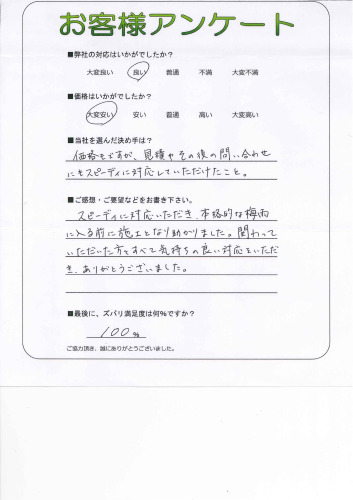 お客様アンケート
■弊社の対応はいかがでしたか？
大変良い 良い 普通 不満 大変不満
■価格はいかがでしたか？
大変安い 安い 普通 高い 大変高い
■当社を選んだ決め手は？
価格もですが、見積やその後の問い合わせ
にもスピーディに対応していただけたこと。
■ご感想・ご要望などをお書き下さい。
スピーディに対応いただき、本格的な梅雨
に入る前に施工となり助かりました。関わって
いただいた方すべて気持ちの良い対応をいただ
き、ありがとうございました。
■最後に、ズバリ満足度は何％ですか？
100％
ご協力頂き、誠にありがとうございました。